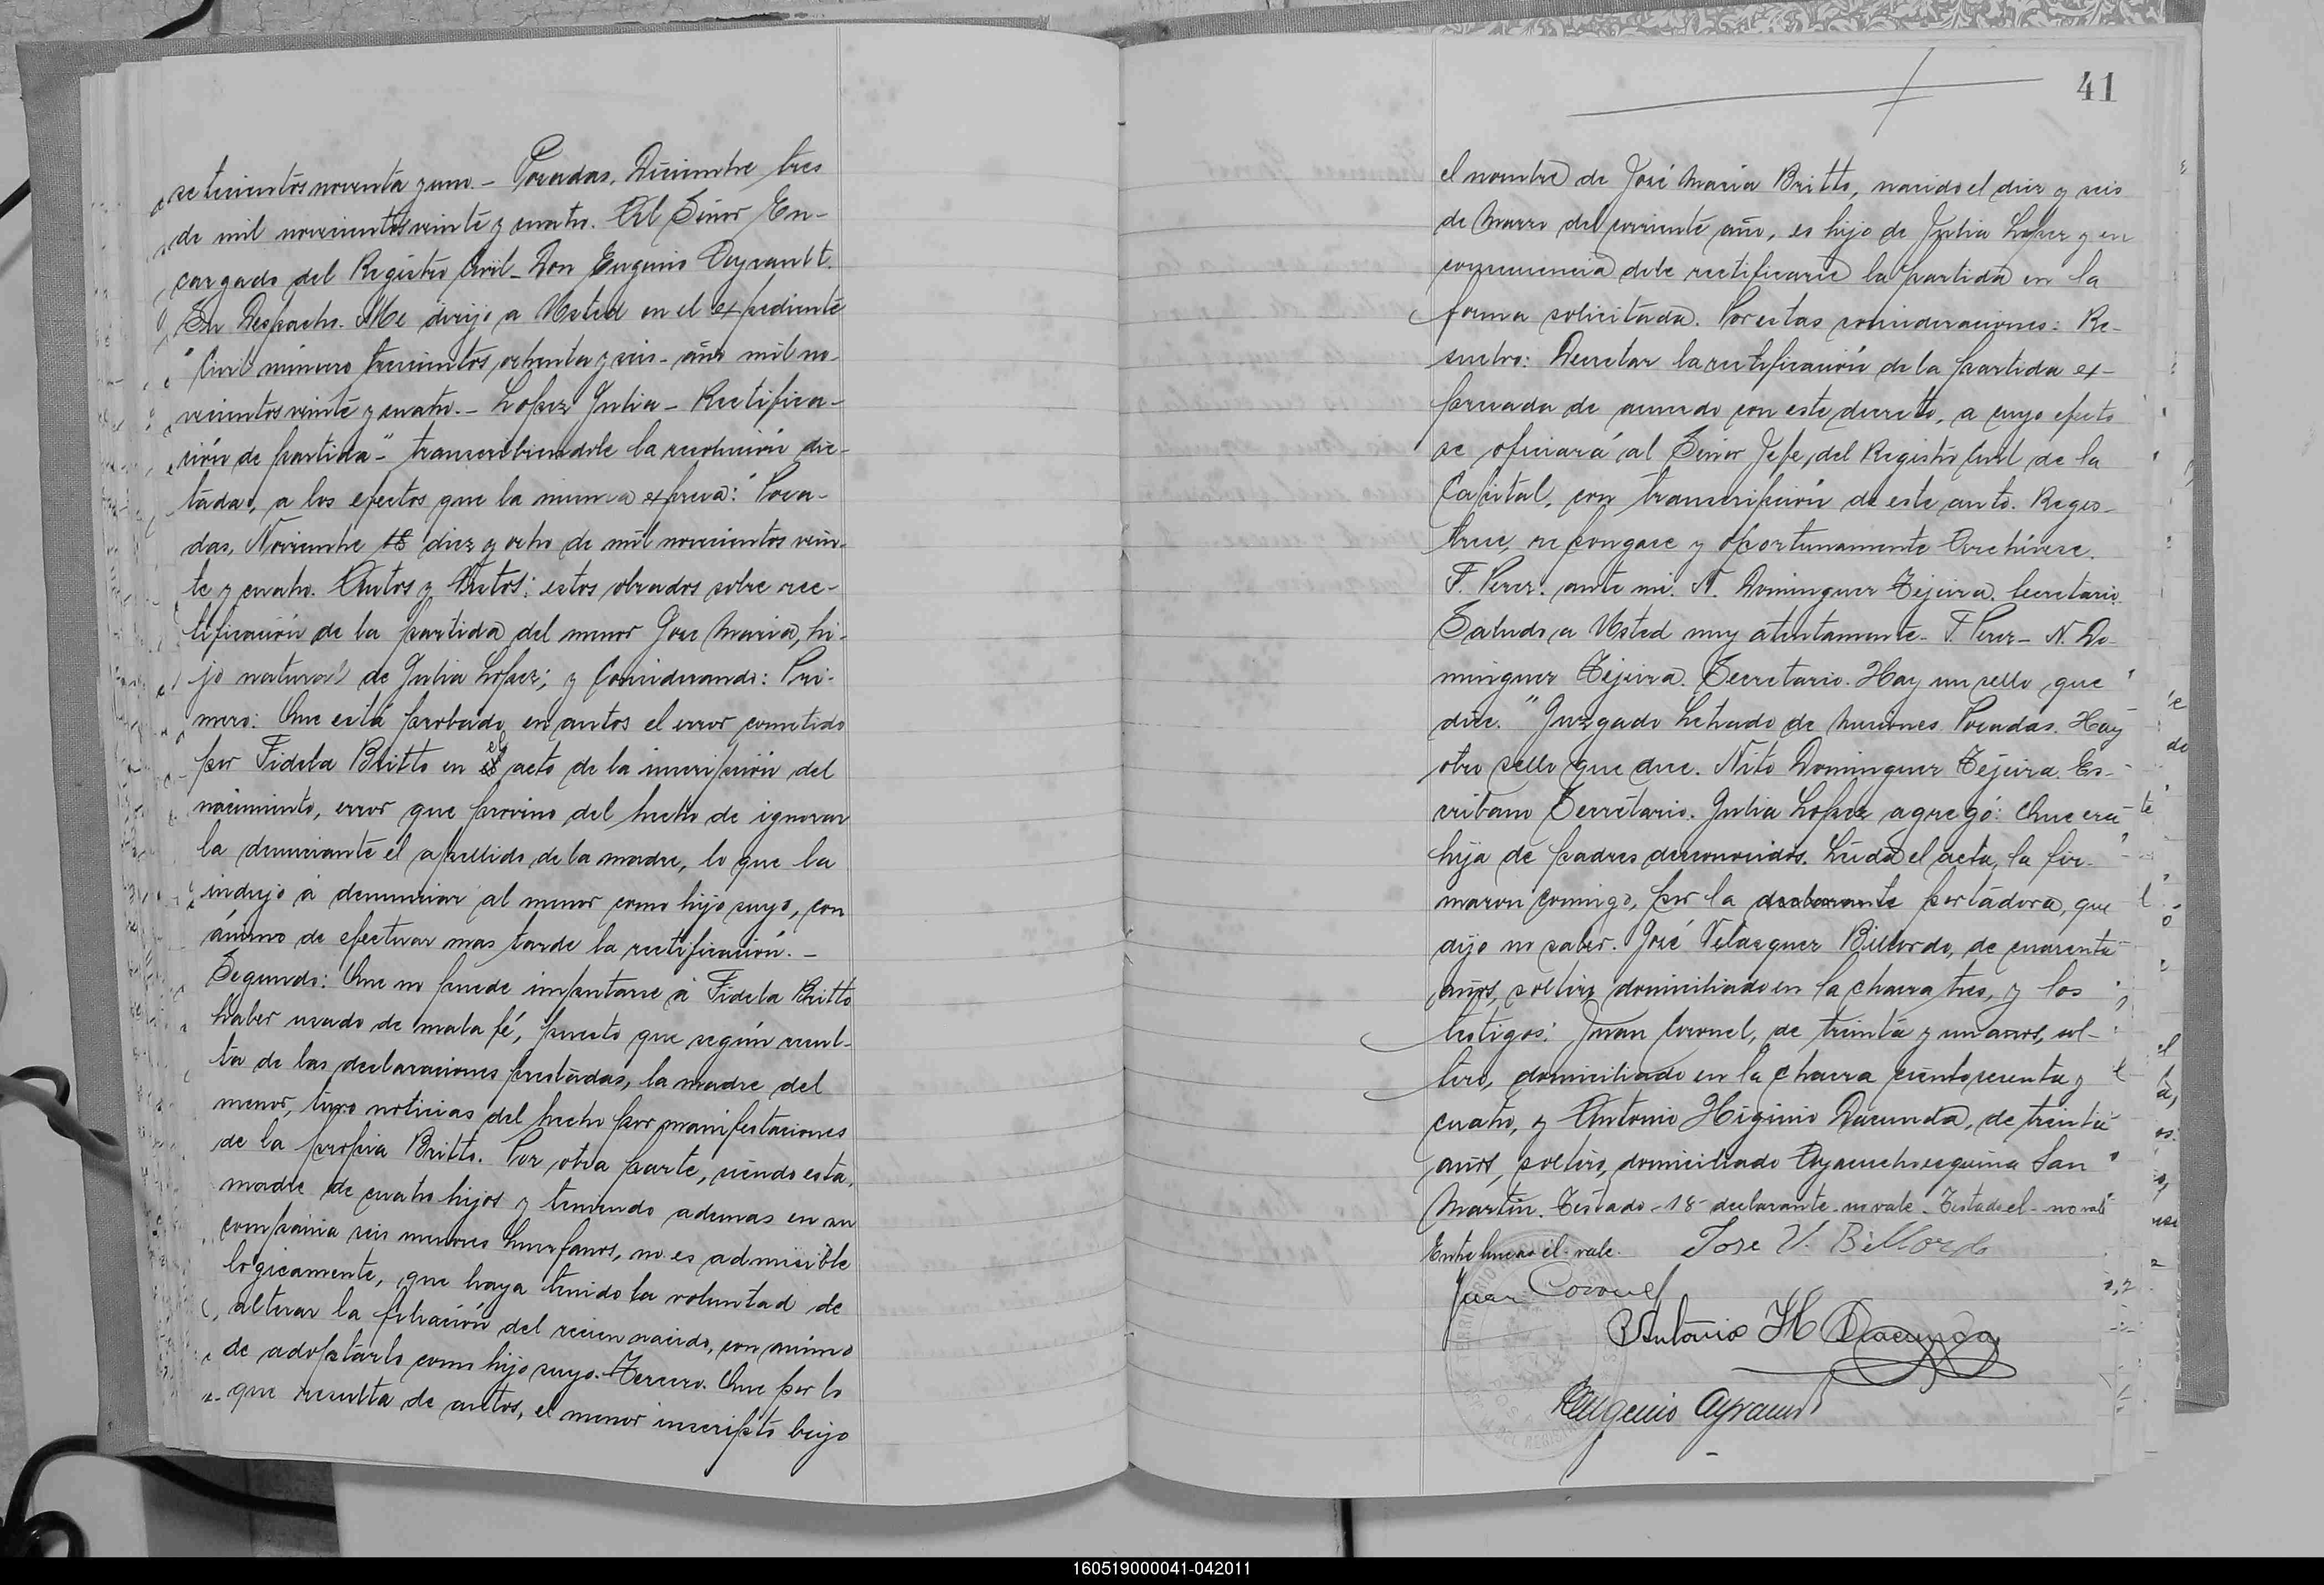 setecientos noventa y uno.- Posadas, Diciembre tres
de mil novecientos veinte y cuatro. Al Señor En-
cargado del Registro Civil- Don Eugenio Ayrault.
Su Despacho. Me dirijo a Usted en el expediente
"Civil número trescientos ochenta y seis- año mil no-
vecientos veinte y cuatro.- Lopez Julia- Rectifica-
ción de partida-" transcribiendole la resolución dic-
tada, a los efectos que la misma expresa: "Posa-
das, Noviembre 18 diez y ocho de mil novecientos vein-
te y cuatro. Autos y Vistos: estos obrados sobre rec-
tificación de la partida del menor Jose Maria, hi-
jo natural de Julia Lopez; y Considerando: Pri-
mero: Que está probado en autos el error cometido
el
por Fidela Britto en el acto de la inscripción del
nacimiento, error que provino del hecho de ignorar
la denunciante el apellido de la madre, lo que la
indujo á denunciar al menor como hijo suyo, con
ánimo de efectuar mas tarde la rectificación.-
Segundo: Que no puede imputarse á Fidela Britto
haber usado de mala fé, puesto que según resul-
ta de las declaraciones prestadas, la madre del
menor, tuvo noticias del hecho por manifestaciones
de la propia Britto. Por otra parte, siendo esta,
madre de cuatro hijos y teniendo ademas en su
compañia seis menores huerfanos, no es admisible
lógicamente, que haya tenido la voluntad de
alterar la filiación del recien nacido, con animo
de adoptarlo como hijo suyo. Tercero. Que por lo
que resulta de autos, el menor inscripto bajo
41
el nombre de José Maria Britto, nacido el diez y seis
de Marzo del corriente año, es hijo de Julia Lopez y en
consecuencia debe rectificarse la partida en la
forma solicitada. Por estas consideraciones: Re-
suelvo: Decretar la rectificación de la partida ex-
presada de acuerdo con este decreto, a cuyo efecto
se oficiará al Señor Jefe del Registro Civil de la
Capital, con transcripción de este auto. Regis-
trese, repongase y oportunamente Archívese.
F. Perez. ante mi. N. Dominguez Tejeira. Secretario.
Saludo a Usted muy atentamente- F. Perez- N. Do-
minguez Tejeira. Secretario. Hay un sello que
dice. "Juzgado Letrado de Misiones Posadas. Hay
otro sello que dice. Nito Dominguez Tejeira. Es-
cribano Secretario. Julia Lopez agregó: Que era
hija de padres desconocidos. Leida el acta, la fir-
maron conmigo, por la declarante portadora, que
dijo no saber. José Velazquez Billordo, de cuarenta
años, soltero, domiciliado en la chacra tres, y los
testigos: Juan Coronel, de treinta y un años, sol-
tero, domiciliado en la chacra ciento sesenta y
cuatro, y Antonio Higinio Dacunda, de treinta
años, soltero, domiciliado Ayacucho esquina San
Martin. Testado- 18- declarante- no vale. Testado el- no vale
Entre lineas el- vale. Jose V. Billordo
Juan Coronel
Antonio H Dacunda
Eugenio Ayrault
160519000041-042011